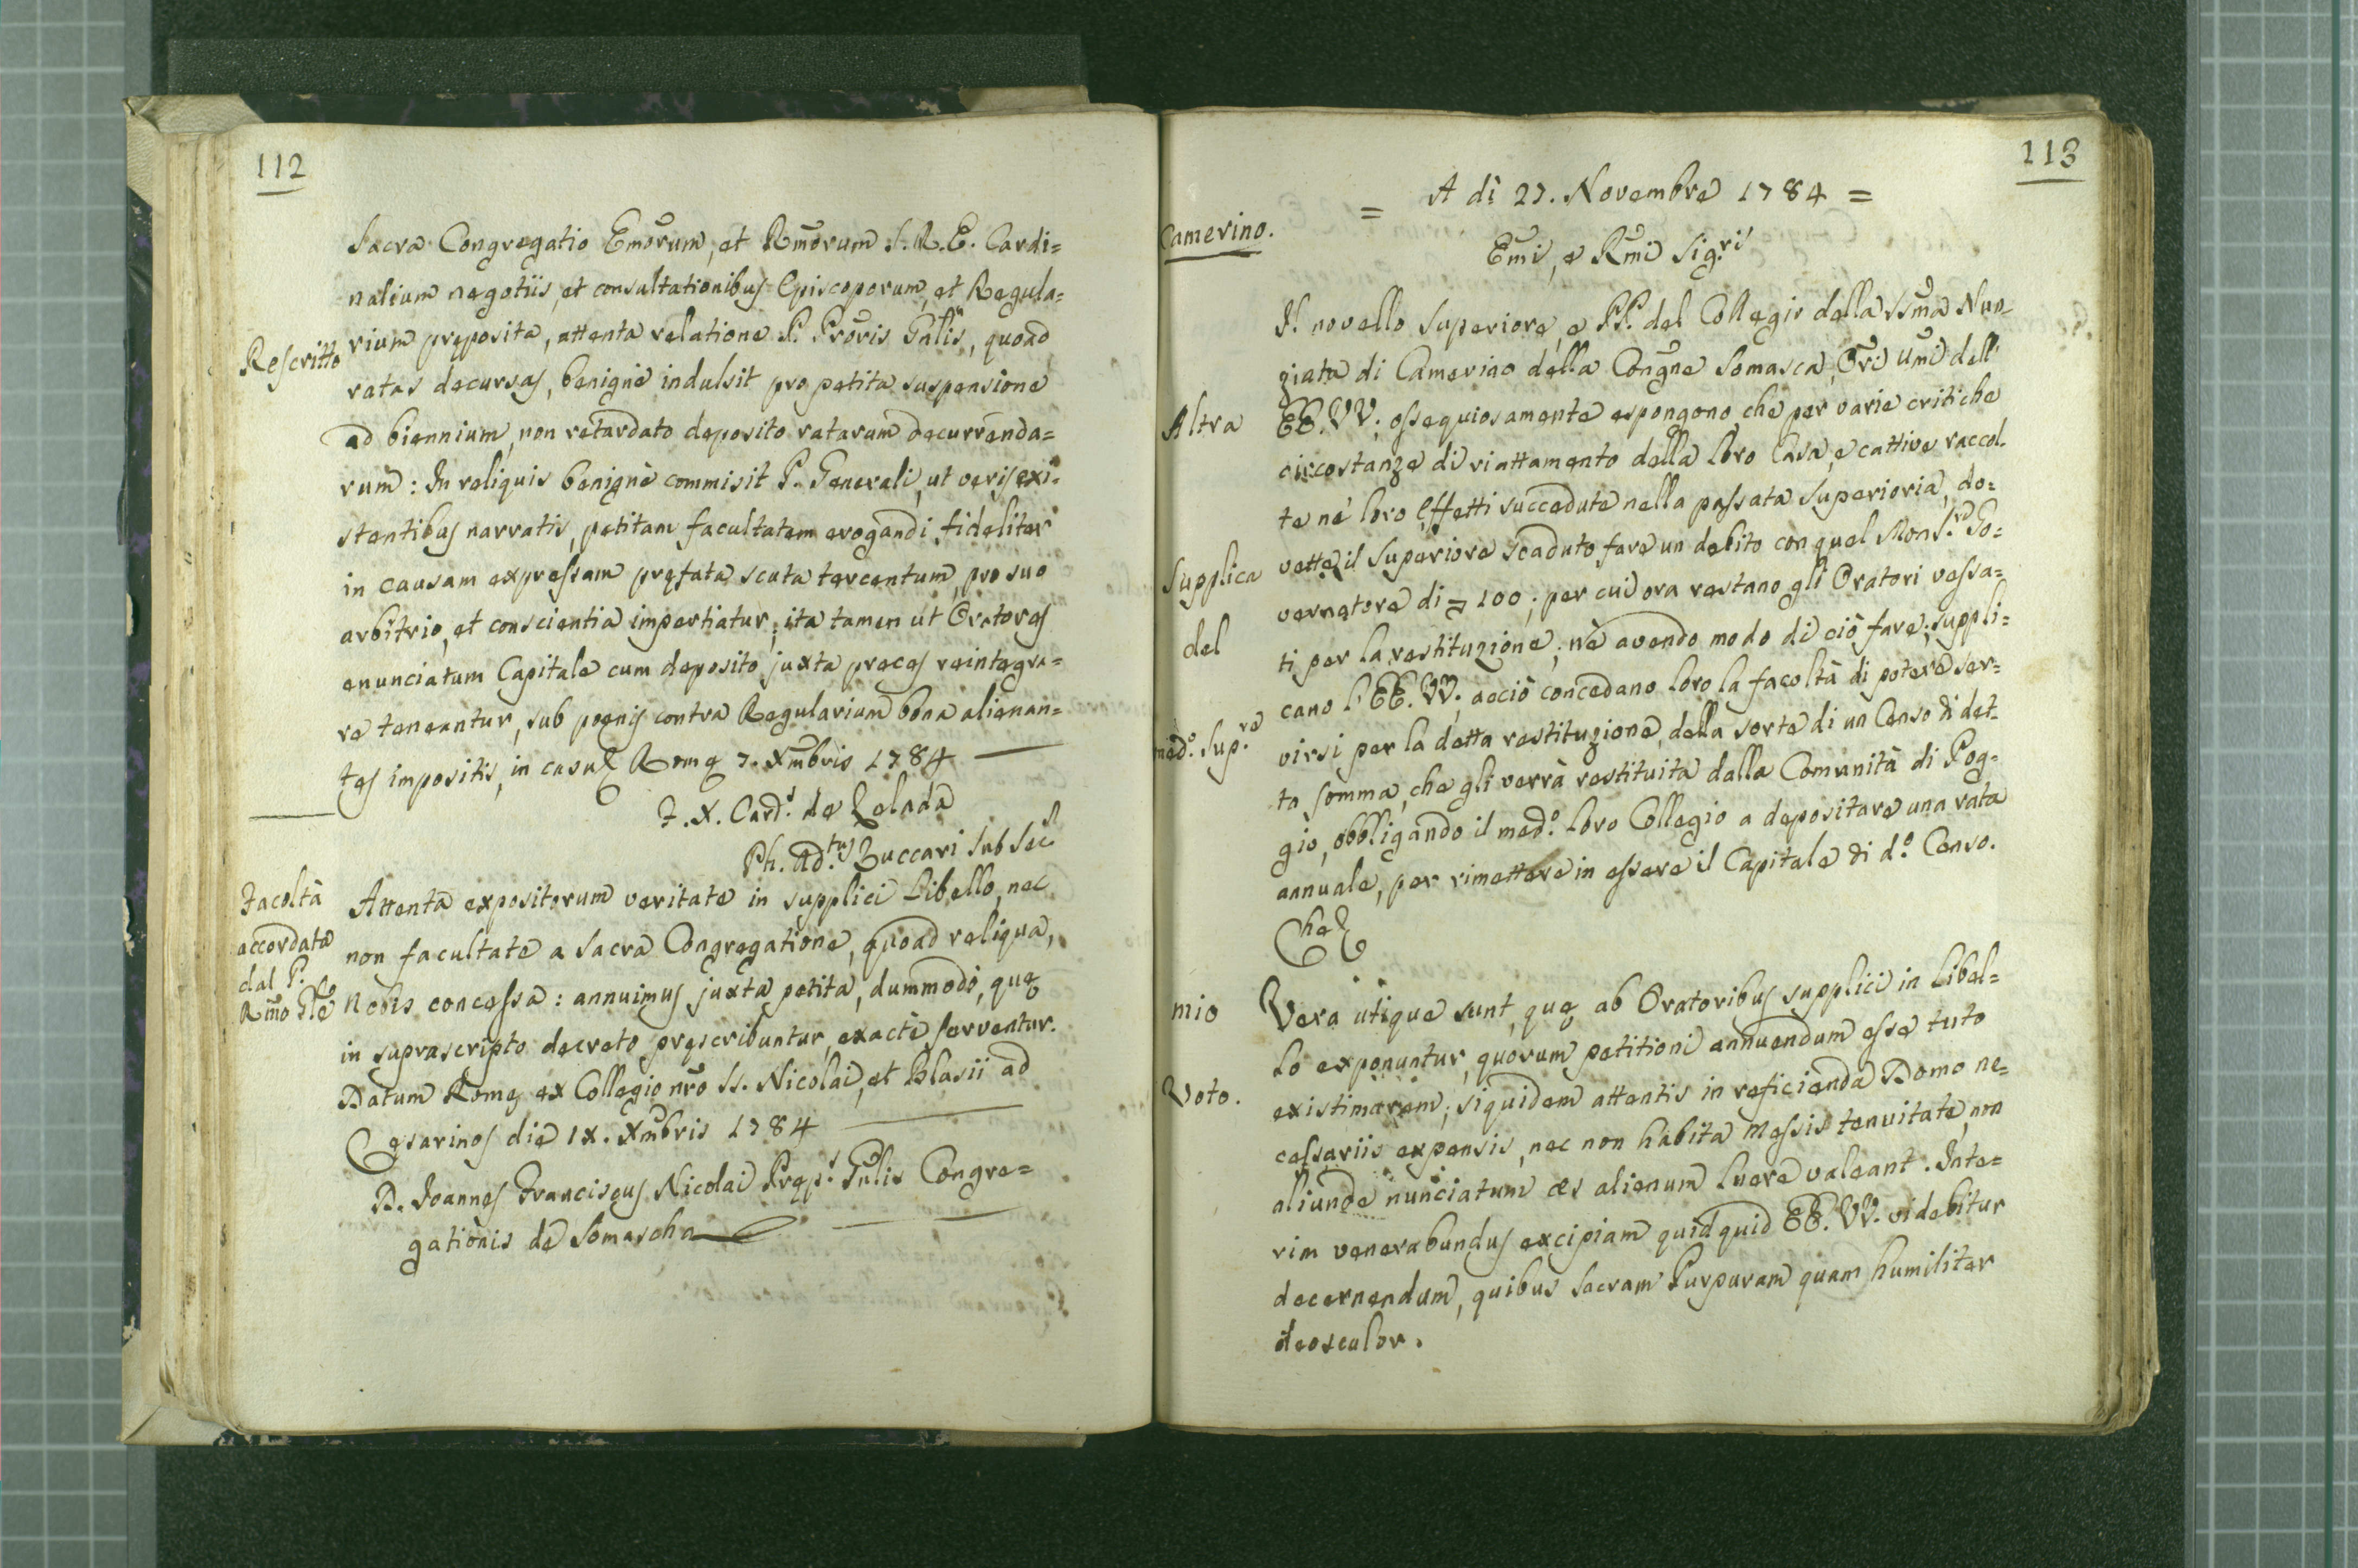 112
Sacra Congregatio Emorum, et Rmorum S. R. E. Cardi=
nalium negotiis, et consultationibus Episcoporum, et Regula=
Rescritto
rium pręposita, attenta relatione P. Proris Gnlis, quoad
ratas decursas, benignè indulsit pro petita suspensione
ad biennium, non retardato deposito ratarum decurrenda=
rum: In reliquis benignè commisit P. Generali, ut veris exi=
stentibus narratis, petitam facultatem erogandi fideliter
in causam expressam pręfata scuta tercentum, pro suo
arbitrio, et conscientia impertiatur; ita tamen ut Oratores
enunciatum Capitale cum deposito juxta preces reintegra=
re teneantur, sub poenis contra Regularium bona alienan=
tes impositis, in casu & Romę 7. Xmbris 1784
F. X. Card.s de Zelada
Ph. Ad.tus Zuccari Sub Sec
Facoltà
accordata
dal P.
Rmo Gle
Attenta expositorum veritate in supplici Libello, nec
non facultate a Sacra Congregatione, quoad reliqua,
Nobis concessa: annuimus juxta petita, dummodo, quę
in suprascripto decreto pręscribuntur, exactè serventur.
Datum Romę ex Collegio nro SS. Nicolai, et Blasii ad
Cęsarinos die IX. Xmbris 1784
D. Joannes Franciscus Nicolai Pręp.s Gnlis Congre=
gationis de Somascha
113
= A dì 27. Novembre 1784 =
Camerino.
Emi, e Rmi Sig.ri
Il novello Superiore, e PP. del Collegio della SSma Nun=
ziata di Camerino della Congne Somasca, Ori Umi dell'
Altra
EE. VV. ossequiosamente espongono, che per varie critiche
circostanze di riattamento della loro Casa, e cattive raccol=
te ne' loro Effetti succedute nella passata Superioria, do=
vette il Superiore scaduto fare un debito con quel Mons.re Go=
Supplica
vernatore di 100; per cui ora restano gli Oratori vessa=
del
ti per la restituzione; nè avendo modo di ciò fare; suppli=
cano l'EE. VV. acciò concedano loro la facoltà di potere ser=
med.o Sup.re
virsi per la detta restituzione, della sorte di un Censo di det=
ta somma, che gli verrà restituita dalla Comunità di Pog=
gio, obbligando il med.o loro Collegio a depositare una rata
annuale, per rimettere in essere il Capitale di d.o Censo.
Che &
mio
Vera utique sunt, quę ab Oratoribus supplici in Libel=
lo exponuntur, quorum petitioni annuendum esse tuto
Voto.
existimarem; siquidem attentis in reficienda Domo ne=
cessariis expensis, nec non habita Messis tenuitate, non
aliunde nunciatum æs alienum luere valeant. Inte=
rim venerabundus excipiam quidquid EE. VV. videbitur
decernendum, quibus Sacram Purpuram quam humiliter
deosculor.